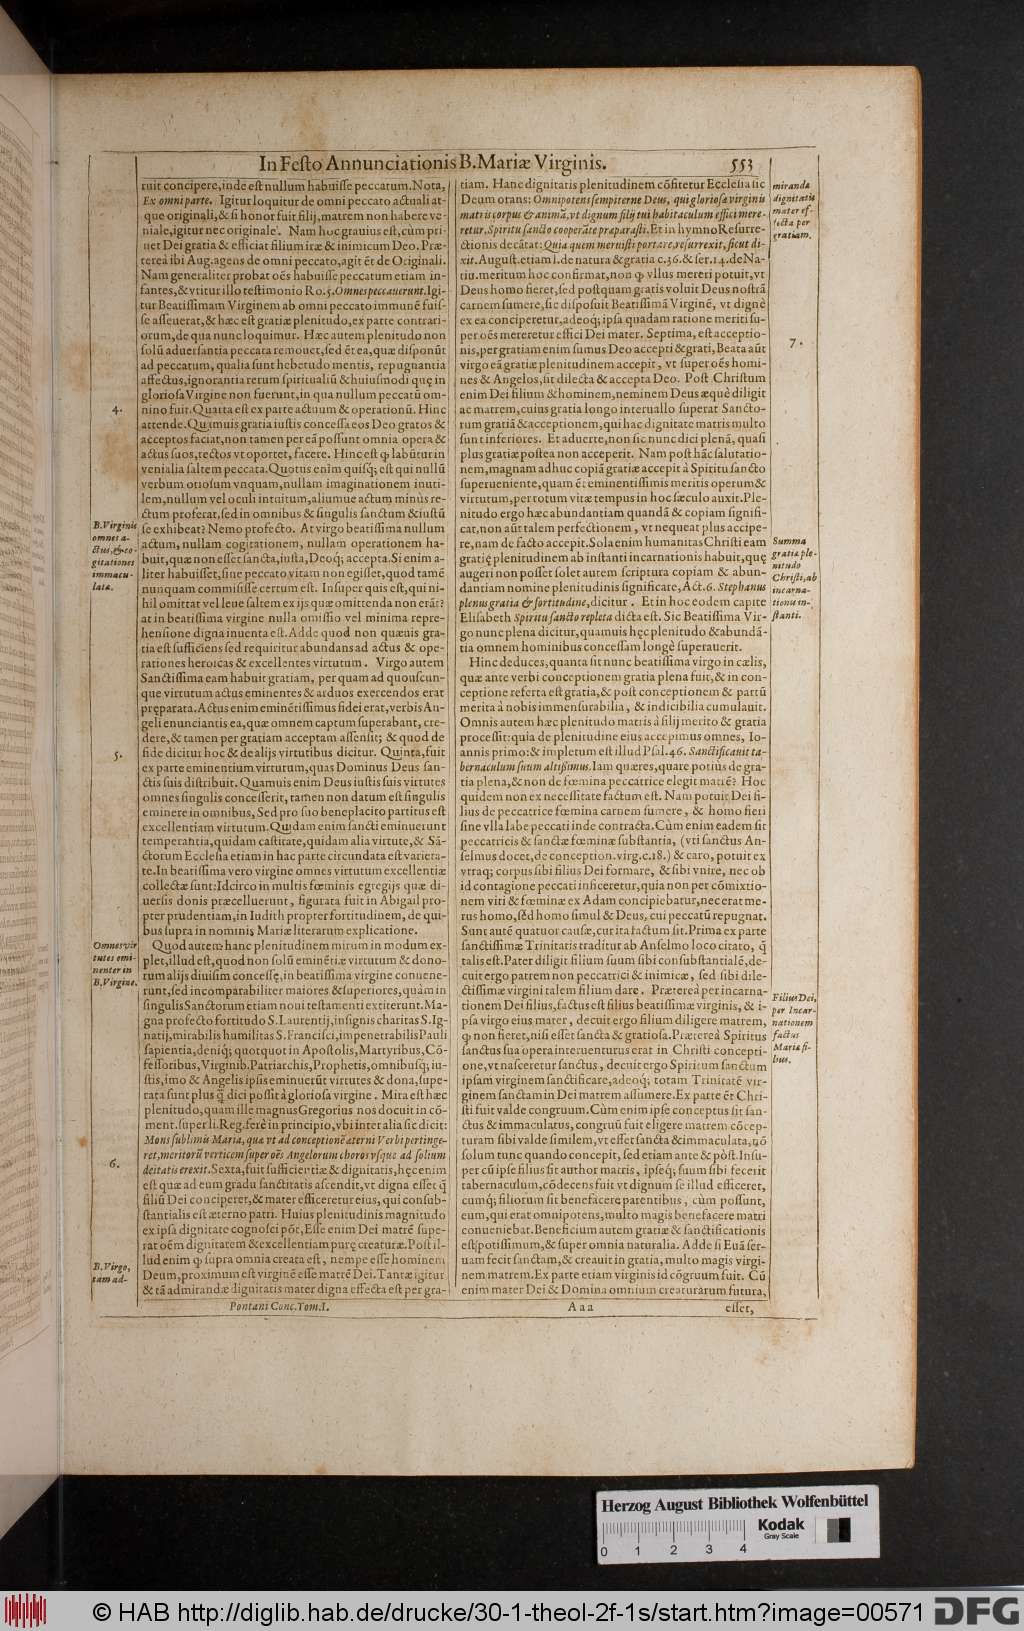 In Festo Annunciationis B. Mariæ Virginis. 553
ruit concipere, inde est nullum habuisse peccatum. Nota,
Ex omni parte. Igitur loquitur de omni peccato actuali at-
que originali, & si honor fuit filij, matrem non habere ve-
niale, igitur nec originale. Nam hoc grauius est, cùm pri-
uet Dei gratia & efficiat filium iræ & inimicum Deo. Præ-
tereà ibi Aug. agens de omni peccato, agit ēt de Originali.
Nam generaliter probat oēs habuisse peccatum etiam in-
fantes, & vtitur illo testimonio Ro. 5. Omnes peccauerunt. Igi-
tur Beatissimam Virginem ab omni peccato immunē fuis-
se asseuerat, & hæc est gratiæ plenitudo, ex parte contrari-
orum, de qua nunc loquimur. Hæc autem plenitudo non
solū aduersantia peccata remouet, sed ēt ea, quæ disponūt
ad peccatum, qualia sunt hebetudo mentis, repugnantia
affectus, ignorantia rerum spiritualiū & huiusmodi quę in
gloriosa Virgine non fuerunt, in qua nullum peccatū om-
4. nino fuit. Quarta est ex parte actuum & operationū. Hinc
attende. Quamuis gratia iustis concessa eos Deo gratos &
acceptos faciat, non tamen per eā possunt omnia opera &
actus suos, rectos vt oportet, facere. Hinc est ꝙ labūtur in
venialia saltem peccata. Quotus enim quisq; est qui nullū
verbum otiosum vnquam, nullam imaginationem inuti-
lem, nullum vel oculi intuitum, aliumue actum minùs re-
ctum proferat, sed in omnibus & singulis sanctum & iustū
se exhibeat? Nemo profecto. At virgo beatissima nullum
actum, nullam cogitationem, nullam operationem ha-
buit, quæ non esset sancta, iusta, Deoq; accepta. Si enim a-
liter habuisset, sine peccato vitam non egisset, quod tamē
nunquam commisisse certum est. Insuper quis est, qui ni-
hil omittat vel leue saltem ex ijs quæ omittenda non erāt?
at in beatissima virgine nulla omissio vel minima repre-
hensione digna inuenta est. Adde quod non quæuis gra-
tia est sufficiens sed requiritur abundans ad actus & ope-
rationes heroicas & excellentes virtutum. Virgo autem
Sanctissima eam habuit gratiam, per quam ad quouscun-
que virtutum actus eminentes & arduos exercendos erat
pręparata. Actus enim eminētissimus fidei erat, verbis An-
geli enunciantis ea, quæ omnem captum superabant, cre-
dere, & tamen per gratiam acceptam assensit; & quod de
5. fide dicitur hoc & de alijs virtutibus dicitur. Quinta, fuit
ex parte eminentium virtutum, quas Dominus Deus san-
ctis suis distribuit. Quamuis enim Deus iustis suis virtutes
omnes singulis concesserit, tamen non datum est singulis
eminere in omnibus, Sed pro suo beneplacito partitus est
excellentiam virtutum. Quidam enim sancti eminuerunt
temperantia, quidam castitate, quidam alia virtute, & Sā-
ctorum Ecclesia etiam in hac parte circundata est varieta-
te. In beatissima vero virgine omnes virtutum excellentiæ
collectæ sunt: Idcirco in multis fœminis egregijs quæ di-
uersis donis præcelluerunt, figurata fuit in Abigail pro-
pter prudentiam, in Iudith propter fortitudinem, de qui-
bus supra in nominis Mariæ literarum explicatione.
Quod autem hanc plenitudinem mirum in modum ex-
plet, illud est, quod non solū eminētiæ virtutum & dono-
rum alijs diuisim concessę, in beatissima virgine conuene-
runt, sed incomparabiliter maiores & superiores, quàm in
singulis Sanctorum etiam noui testamenti extiterunt. Ma-
gna profecto fortitudo S. Laurentij, insignis charitas S. Ig-
natij, mirabilis humilitas S. Francisci, impenetrabilis Pauli
sapientia, deniq; quotquot in Apostolis, Martyribus, Cō-
fessoribus, Virginib. Patriarchis, Prophetis, omnibusq; iu-
stis, imo & Angelis ipsis eminuerūt virtutes & dona, supe-
rata sunt plus q̄ dici possit à gloriosa virgine. Mira est hæc
plenitudo, quam ille magnus Gregorius nos docuit in cō-
ment. super li. Reg. ferè in principio, vbi inter alia sic dicit:
Mons sublimis Maria, quæ vt ad conceptionē æterni Verbi pertinge-
ret, meritorū verticem super oēs Angelorum choros vsque ad solium
6. deitatis erexit. Sexta, fuit sufficientiæ & dignitatis, hęc enim
est quæ ad eum gradu sanctitatis ascendit, vt digna esset q̄
filiū Dei conciperet, & mater efficeretur eius, qui consub-
stantialis est æterno patri. Huius plenitudinis magnitudo
ex ipsa dignitate cognosci pōt, Esse enim Dei matrē supe-
rat oēm dignitatem & excellentiam purę creaturæ. Post il-
lud enim ꝙ supra omnia creata est, nempe esse hominem
Deum, proximum est virginē esse matrē Dei. Tantæ igitur
& tā admirandæ dignitatis mater digna effecta est per gra-
B. Virginis
omnes a-
ctus, & co-
gitationes
immacu-
latæ.
Omnes vir
tutes emi-
nenter in
B. Virgine.
B. Virgo,
tam ad-
Pontani Conc. Tom. I.
tiam. Hanc dignitatis plenitudinem cōfitetur Ecclesia sic
Deum orans: Omnipotens sempiterne Deus, qui gloriosæ virginis
matris corpus & animā, vt dignum filij tui habitaculum effici mere-
retur, Spiritu sancto cooperāte præparasti. Et in hymno Resurre-
ctionis decātat: Quia quem meruisti portare, resurrexit, sicut di-
xit. August. etiam l. de natura & gratia c. 36. & ser. 14. de Na-
tiu. meritum hoc confirmat, non ꝙ vllus mereri potuit, vt
Deus homo fieret, sed postquam gratis voluit Deus nostrā
carnem sumere, sic disposuit Beatissimā Virginē, vt dignè
ex ea conciperetur, adeoq; ipsa quadam ratione meriti su-
per oēs mereretur effici Dei mater. Septima, est acceptio-
nis, per gratiam enim sumus Deo accepti & grati, Beata aūt
virgo eā gratiæ plenitudinem accepit, vt super oēs homi-
nes & Angelos, sit dilecta & accepta Deo. Post Christum
enim Dei filium & hominem, neminem Deus æquè diligit
ac matrem, cuius gratia longo interuallo superat Sancto-
rum gratiā & acceptionem, qui hac dignitate matris multo
sunt inferiores. Et aduerte, non sic nunc dici plenā, quasi
plus gratiæ postea non acceperit. Nam post hāc salutatio-
nem, magnam adhuc copiā gratiæ accepit à Spiritu sancto
superueniente, quam ēt eminentissimis meritis operum &
virtutum, per totum vitæ tempus in hoc sæculo auxit. Ple-
nitudo ergo hæc abundantiam quandā & copiam signifi-
cat, non aūt talem perfectionem, vt nequeat plus accipe-
re, nam de facto accepit. Sola enim humanitas Christi eam
gratię plenitudinem ab instanti incarnationis habuit, quę
augeri non posset solet autem scriptura copiam & abun-
dantiam nomine plenitudinis significare, Act. 6. Stephanus
plenus gratia & fortitudine, dicitur. Et in hoc eodem capite
Elisabeth Spiritu sancto repleta dicta est. Sic Beatissima Vir-
go nunc plena dicitur, quamuis hęc plenitudo & abundā-
tia omnem hominibus concessam longè superauerit.
Hinc deduces, quanta sit nunc beatissima virgo in cælis,
quæ ante verbi conceptionem gratia plena fuit, & in con-
ceptione referta est gratia, & post conceptionem & partū
merita à nobis immensurabilia, & indicibilia cumulauit.
Omnis autem hæc plenitudo matris à filij merito & gratia
processit: quia de plenitudine eius accepimus omnes, Io-
annis primo: & impletum est illud Psal. 46. Sanctificauit ta-
bernaculum suum altissimus. Iam quæres, quare potius de gra-
tia plena, & non de fœmina peccatrice elegit matrē? Hoc
quidem non ex necessitate factum est. Nam potuit Dei fi-
lius de peccatrice fœmina carnem sumere, & homo fieri
sine vlla labe peccati inde contracta. Cùm enim eadem sit
peccatricis & sanctæ fœminæ substantia, (vti sanctus An-
selmus docet, de conception. virg. c. 18.) & caro, potuit ex
vtraq; corpus sibi filius Dei formare, & sibi vnire, nec ob
id contagione peccati inficeretur, quia non per cōmixtio-
nem viri & fœminæ ex Adam concipiebatur, nec erat me-
rus homo, sed homo simul & Deus, cui peccatū repugnat.
Sunt autē quatuor causæ, cur ita factum sit. Prima ex parte
sanctissimæ Trinitatis traditur ab Anselmo loco citato, q̄
talis est. Pater diligit filium suum sibi consubstantialē, de-
cuit ergo patrem non peccatrici & inimicæ, sed sibi dile-
ctissimæ virgini talem filium dare. Prætereà per incarna-
tionem Dei filius, factus est filius beatissimæ virginis, & i-
psa virgo eius mater, decuit ergo filium diligere matrem,
ꝙ non fieret, nisi esset sancta & gratiosa. Prætereà Spiritus
sanctus sua opera interuenturus erat in Christi concepti-
one, vt nasceretur sanctus, decuit ergo Spiritum sanctum
ipsam virginem sanctificare, adeoq; totam Trinitatē vir-
ginem sanctam in Dei matrem assumere. Ex parte ēt Chri-
sti fuit valde congruum. Cùm enim ipse conceptus sit san-
ctus & immaculatus, congruū fuit eligere matrem cōcep-
turam sibi valde similem, vt esset sancta & immaculata, nō
solum tunc quando concepit, sed etiam ante & pòst. Insu-
per cū ipse filius sit author matris, ipseq; suum sibi fecerit
tabernaculum, cōdecens fuit vt dignum se illud efficeret,
cumq; filiorum sit benefacere parentibus, cùm possunt,
eum, qui erat omnipotens, multo magis benefacere matri
conueniebat. Beneficium autem gratiæ & sanctificationis
est potissimum, & super omnia naturalia. Adde si Euā ser-
uam fecit sanctam, & creauit in gratia, multo magis virgi-
nem matrem. Ex parte etiam virginis id cōgruum fuit. Cū
enim mater Dei & Domina omnium creaturarum futura,
A a a esset,
mirandæ
dignitatis
mater ef-
fecta per
gratiam.
7.
Summa
gratiæ ple-
nitudo
Christi, ab
incarna-
tionis in-
stanti.
Filius Dei,
per Incar-
nationem
factus
Mariæ fi-
lius.
Herzog August Bibliothek Wolfenbüttel
Kodak
Gray Scale
0 1 2 3 4
© HAB http://diglib.hab.de/drucke/30-1-theol-2f-1s/start.htm?image=00571 DFG